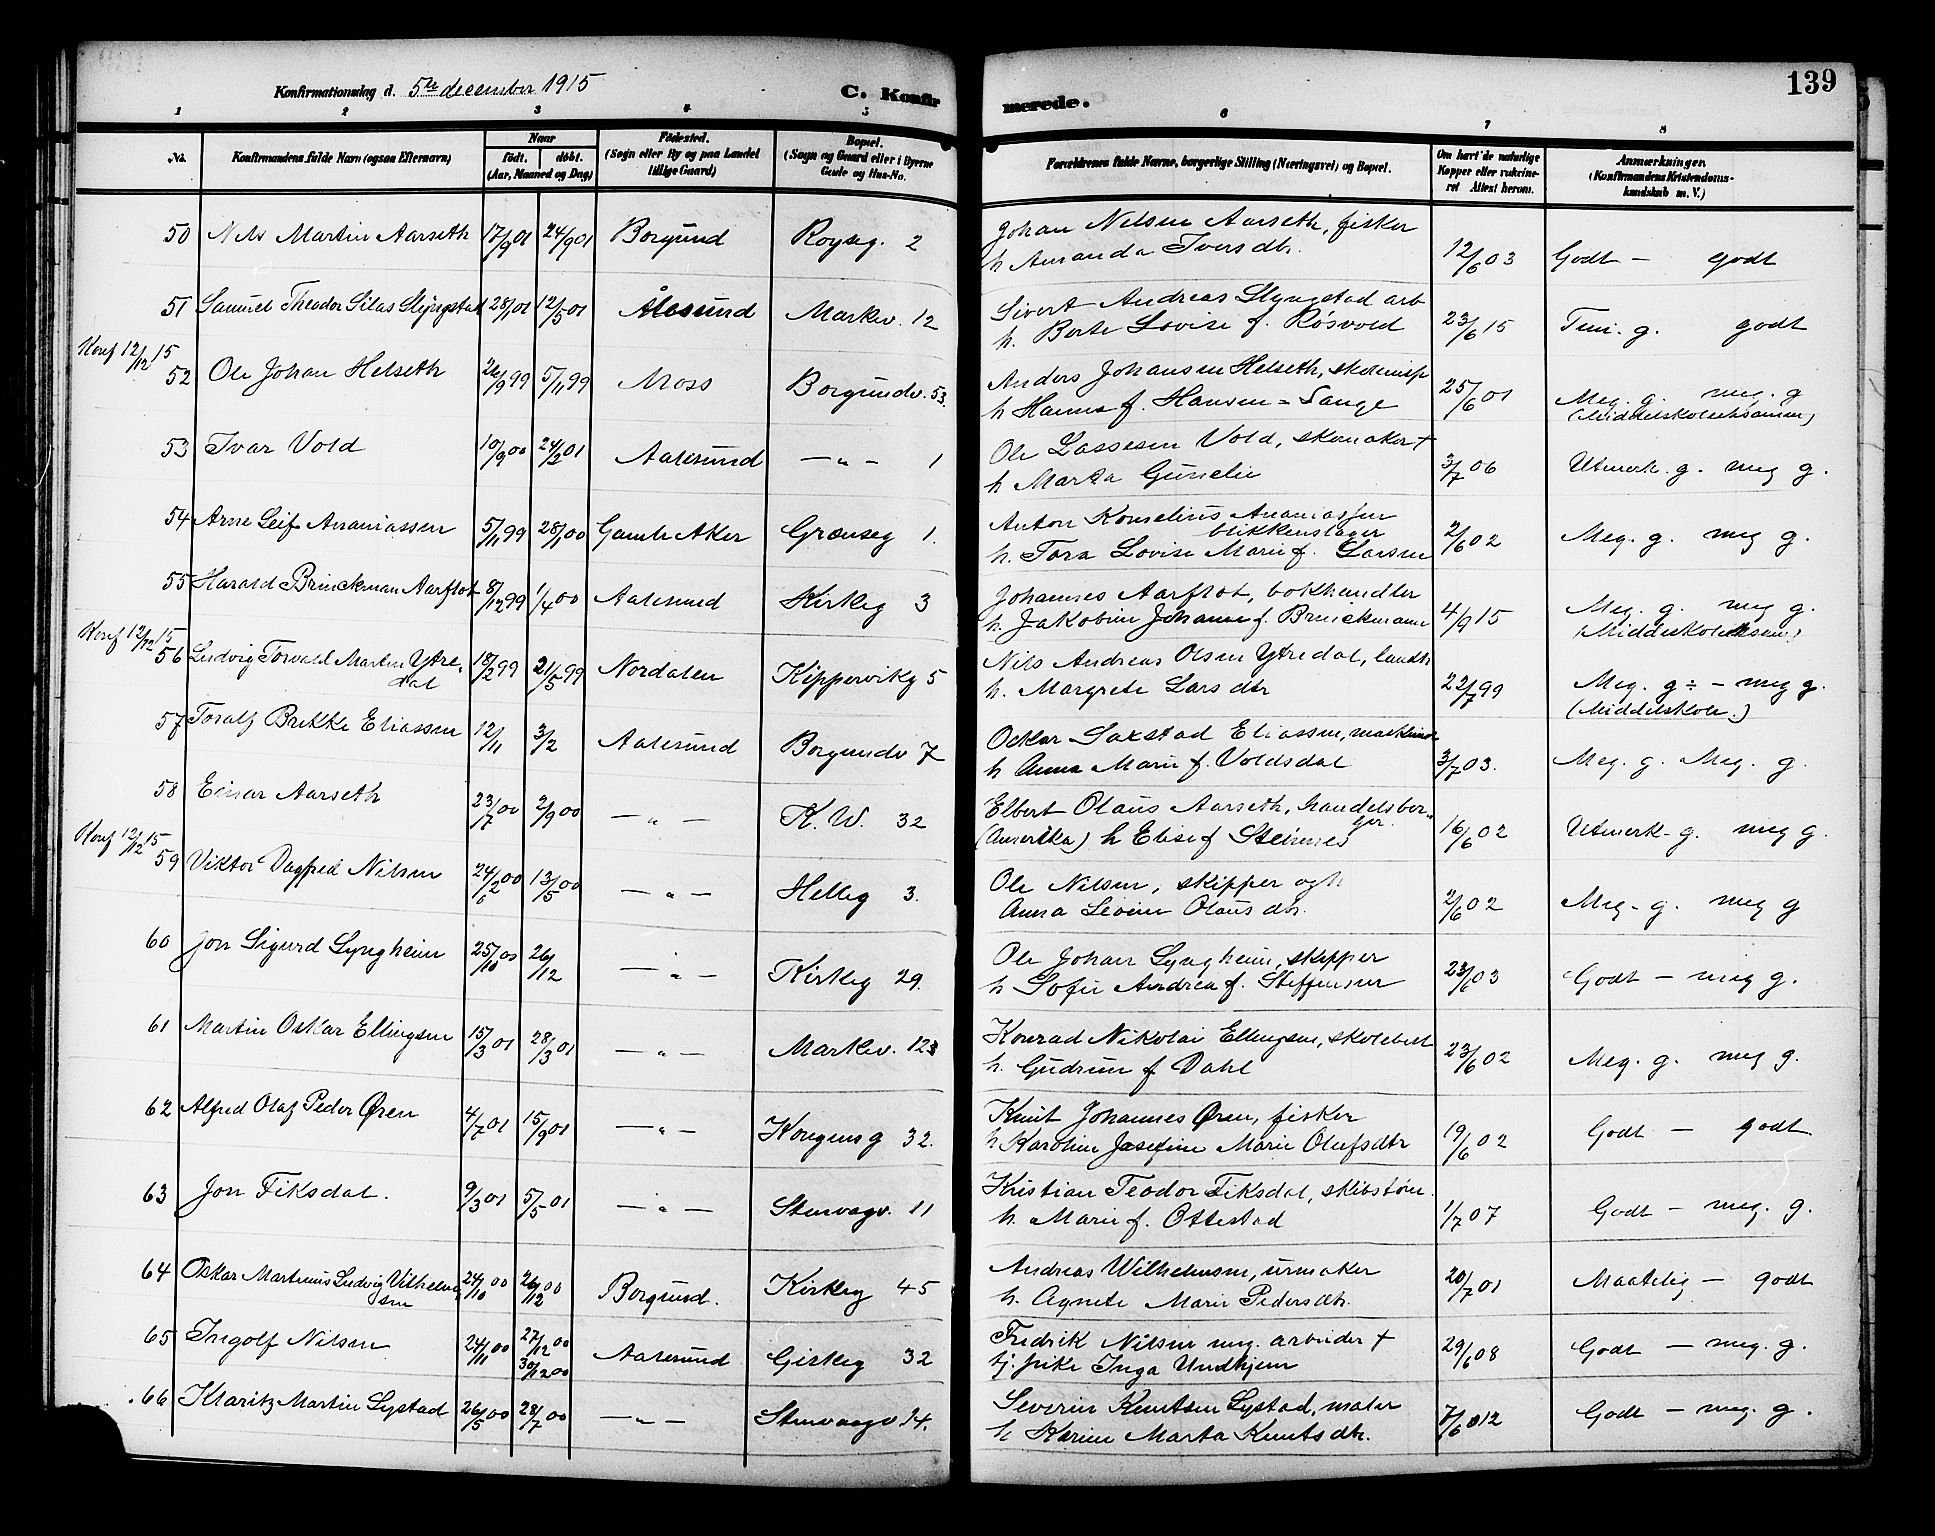 Konfirmationsdag d. 5te december 1915
C. Konfirmerede.
139
1 2 3 4 5 6 7 8
No.
Konfirmandens fulde Navn (ogsaa Efternavn)
Naar
født. døbt.
(Aar, Maaned og Dag)
Fødested.
(Sogn eller By og paa Landet tillige Gaard)
Bopæl.
(Sogn og Gaard eller i Byerne Gade og Hus-No.
Forældrenes fulde Navne, borgerlige Stilling (Næringsvei) og Bopæl.
Om havt de naturlige Kopper eller vaccineret Attest herom.
Anmærkninger.
(Konfirmandens Kristendomskundskab m. V.)
50 Nils Martin Aarseth 17/9 01 24/9 01 Borgund Røyseg. 2
Johan Nilsen Aarseth, fisker
h Amanda Iversdtr. 12/6 03 Godt - godt
51 Samuel Theodor Silas Slyngstad 28/1 01 12/5 01 Ålesund Markev. 12
Sivert Andreas Slyngstad arb
h. Berte Lovise f. Røsvold 23/6 15 Tem. g. godt
Konf 12/12 15
52 Ole Johan Helseth 26/9 99 5/11 99 Moss Borgundv. 53.
Anders Johansen Helseth, skoleinsp
h Hanna f. Hansen-Lange 25/6 01 Meg. g. meg. g
(Middelskoleeksamen)
53 Ivar Vold 10/9 00 24/2 01 Aalesund — „ — 1
Ole Lassesen Vold, skomaker +
h Marta Gunelie 3/7 06 Utmerk. g. meg g.
54 Arne Leif Ananiassen 5/11 99 28/1 00 Gamle Aker Grænseg 1.
Anton Kornelius Ananiassen
blikkenslager
h. Tora Lovise Marie f. Larsen 2/6 02 Meg. g. meg g.
55 Harald Brinckman Aarflot 8/12 99 1/4 00 Aalesund Kirkeg 3
Johannes Aarflot, bokhandler
h. Jakobine Johanne f. Brinckmann 4/9 15 Meg. g. meg g.
(Middelskoleeksam.)
Konf 12/12 15
56 Ludvig Torvald Martin Ytredal 18/2 99 21/5 99 Nordalen Kippervikg 5
Nils Andreas Olsen Ytredal, landh
h. Margrete Larsdtr 22/7 99 Meg. g ÷ - meg g.
(Middelskole.)
57 Toralf Brekke Eliassen 12/11 3/2 Aalesund Borgundv 7
Oskar Saxstad Eliassen, maskinist
h Anna Marie f. Voldsdal 3/7 03. Meg. g. Meg. g.
58 Einar Aarseth 23/7 00 2/9 00 — „ — K. W. 32
Elbert Olaus Aarseth, handelsborger.
(Amerika) h Elise f Steinnes 16/6 02 Utmerk- g. meg g.
Konf 12/12 15
59 Viktor Dagfred Nilsen 24/2 00 13/5 00 — „ — Helleg 3.
Ole Nilsen, skipper og h
Anna Sevrine Olausdtr. 2/6 02 Meg- g. meg g
60 Jon Sigurd Lyngheim 25/10 00 26/12 — „ — Kirkeg 29.
Ole Johan Lyngheim, skipper
h Sofie Andrea f. Steffensen 23/6 03 Godt - meg g.
61 Martin Oskar Ellingsen 15/3 01 28/3 01 — „ — Markev. 123
Konrad Nikolai Ellingsen, skolebest
h. Gudrun f Dahl 23/6 02 Meg. g. meg g.
62 Alfred Olaf Peder Øren 4/7 01 15/9 01 — „ — Kongens g 32.
Knut Johannes Øren, fisker
h Karoline Josefine Marie Olufsdtr 19/6 02 Godt — godt.
63 Jon Fiksdal. 9/3 01 5/5 01 — „ — Stenvaagv. 11
Kristian Teodor Fiksdal, skibstøm.
h. Marie f. Ottestad 1/7 07 Godt - meg. g.
64 Oskar Martinus Ludvig Vilhelmsen 24/10 00 26/12 00 Borgund. Kirkeg 45
Andreas Wilhelmsen, urmaker
h. Agnete Marie Pedersdtr. 20/7 01 Maatelig - godt
65 Ingolf Nilsen 24/11 00 27/12 00 30/12 00 Aalesund Girkeg 32
Fredrik Nilsen ung. arbeider +
tj. pike Inga Undhjem 29/6 08 Godt - meg. g.
66 Klaritz Martin Systad 26/5 00 28/7 00 — „ — Stenvaagv 14.
Severin Knutsen Systad, maler
h Karine Marta Knutsdtr. 7/6 012 Godt - meg. g.